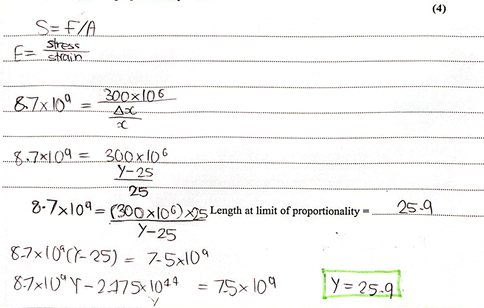 (4)
S = F/A
E = stress/strain
8.7×10⁹ = 300×10⁶/(Δx/x)
8.7×10⁹ = 300×10⁶/((Y-25)/25)
8.7×10⁹ = (300×10⁶)×25/(Y-25) Length at limit of proportionality = 25.9
8.7×10⁹(Y-25) = 7.5×10⁹
8.7×10⁹Y - 2.175×10¹¹ = 75×10⁹ Y = 25.9
Y